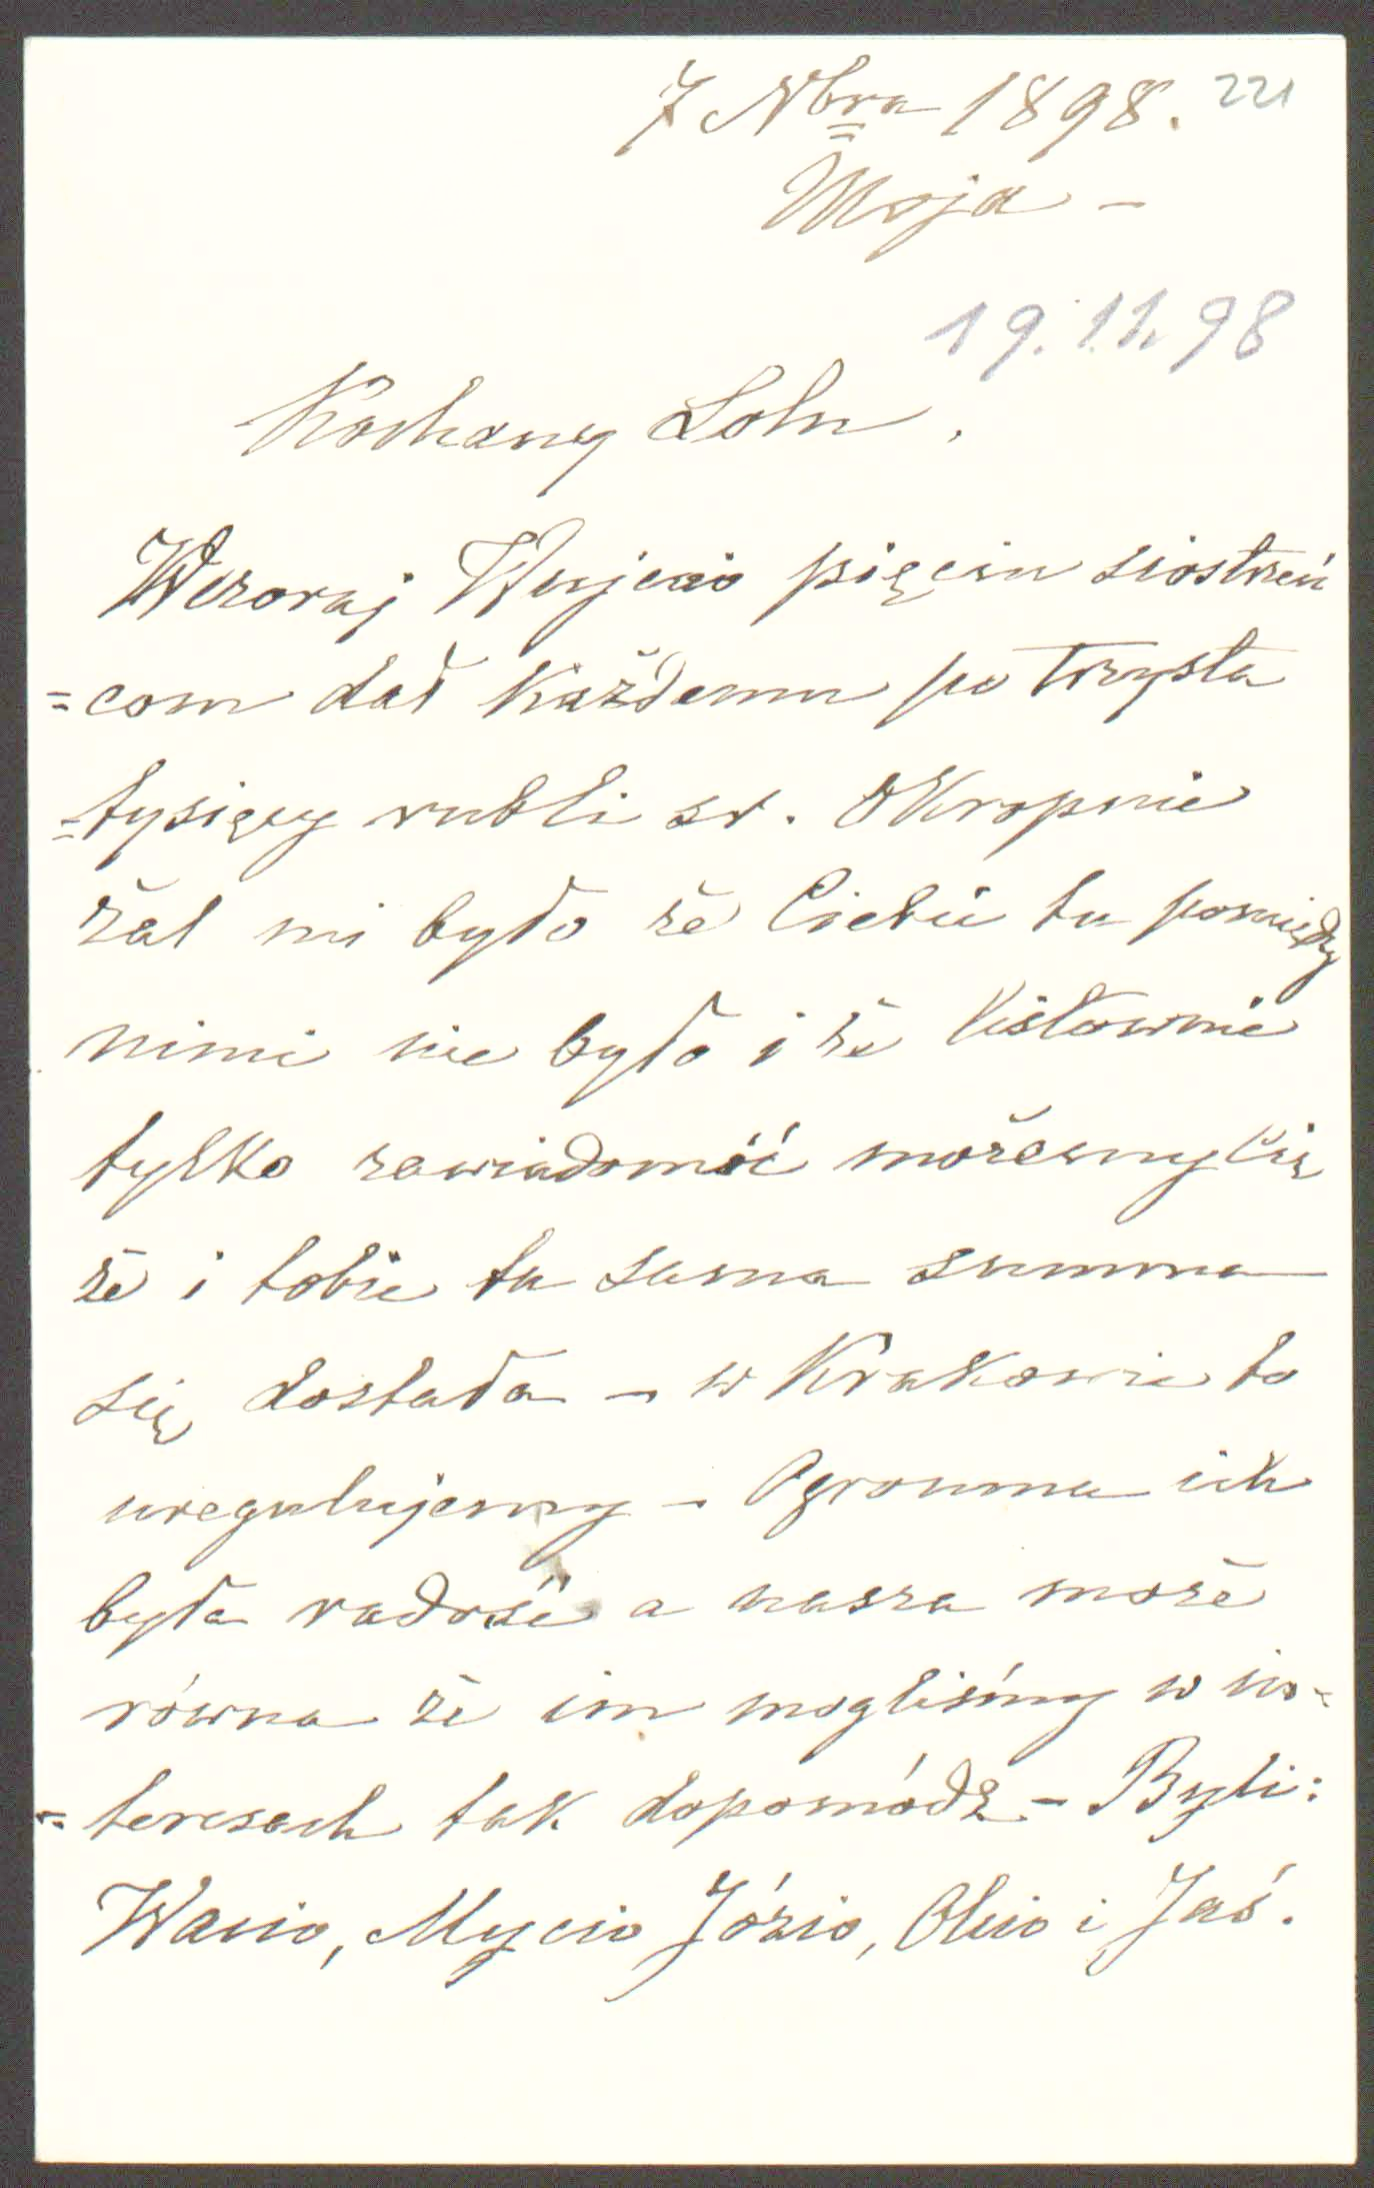 7 Nbra 1898. 221
Moja -
19.11.98
Kochany Lolu.
Wczoraj Wujcio pięciu siostrzeń
=com dał każdemu po trzysta
=tysięcy rubli sr. Okropnie
żal mi było że Ciebie tu pomiędzy
nimi nie było i że listownie
tylko zawiadomić możemy Cię
że i tobie ta sama summa
się dostała - w Krakowie to
uregulujemy - Ogromna ich
była radość a nasza może
równa że im mogliśmy w in-
=teresach tak dopomódz - Byli:
Wacio, Mycio Józio, Olcio i Jaś.